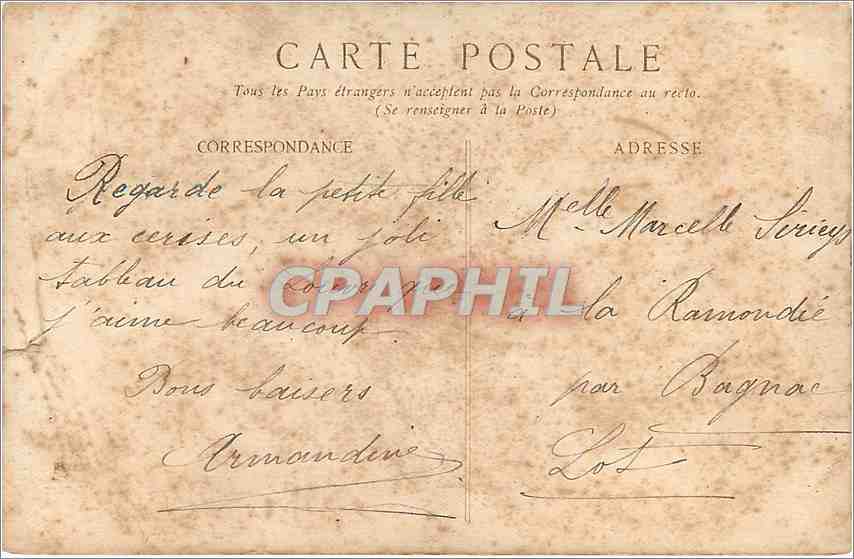 CARTE POSTALE
Tous les Pays étrangers n'acceptent pas la Correspondance au recto.
(Se renseigner à la Poste)
CORRESPONDANCE
Regarde la petite fille
aux cerises, un joli
tableau du Louvre que
j'aime beaucoup.
Bons baisers
Armandine
ADRESSE
Melle Marcelle Siricys
à la Ramondié
par Bagnac
Lot
CPAPHIL